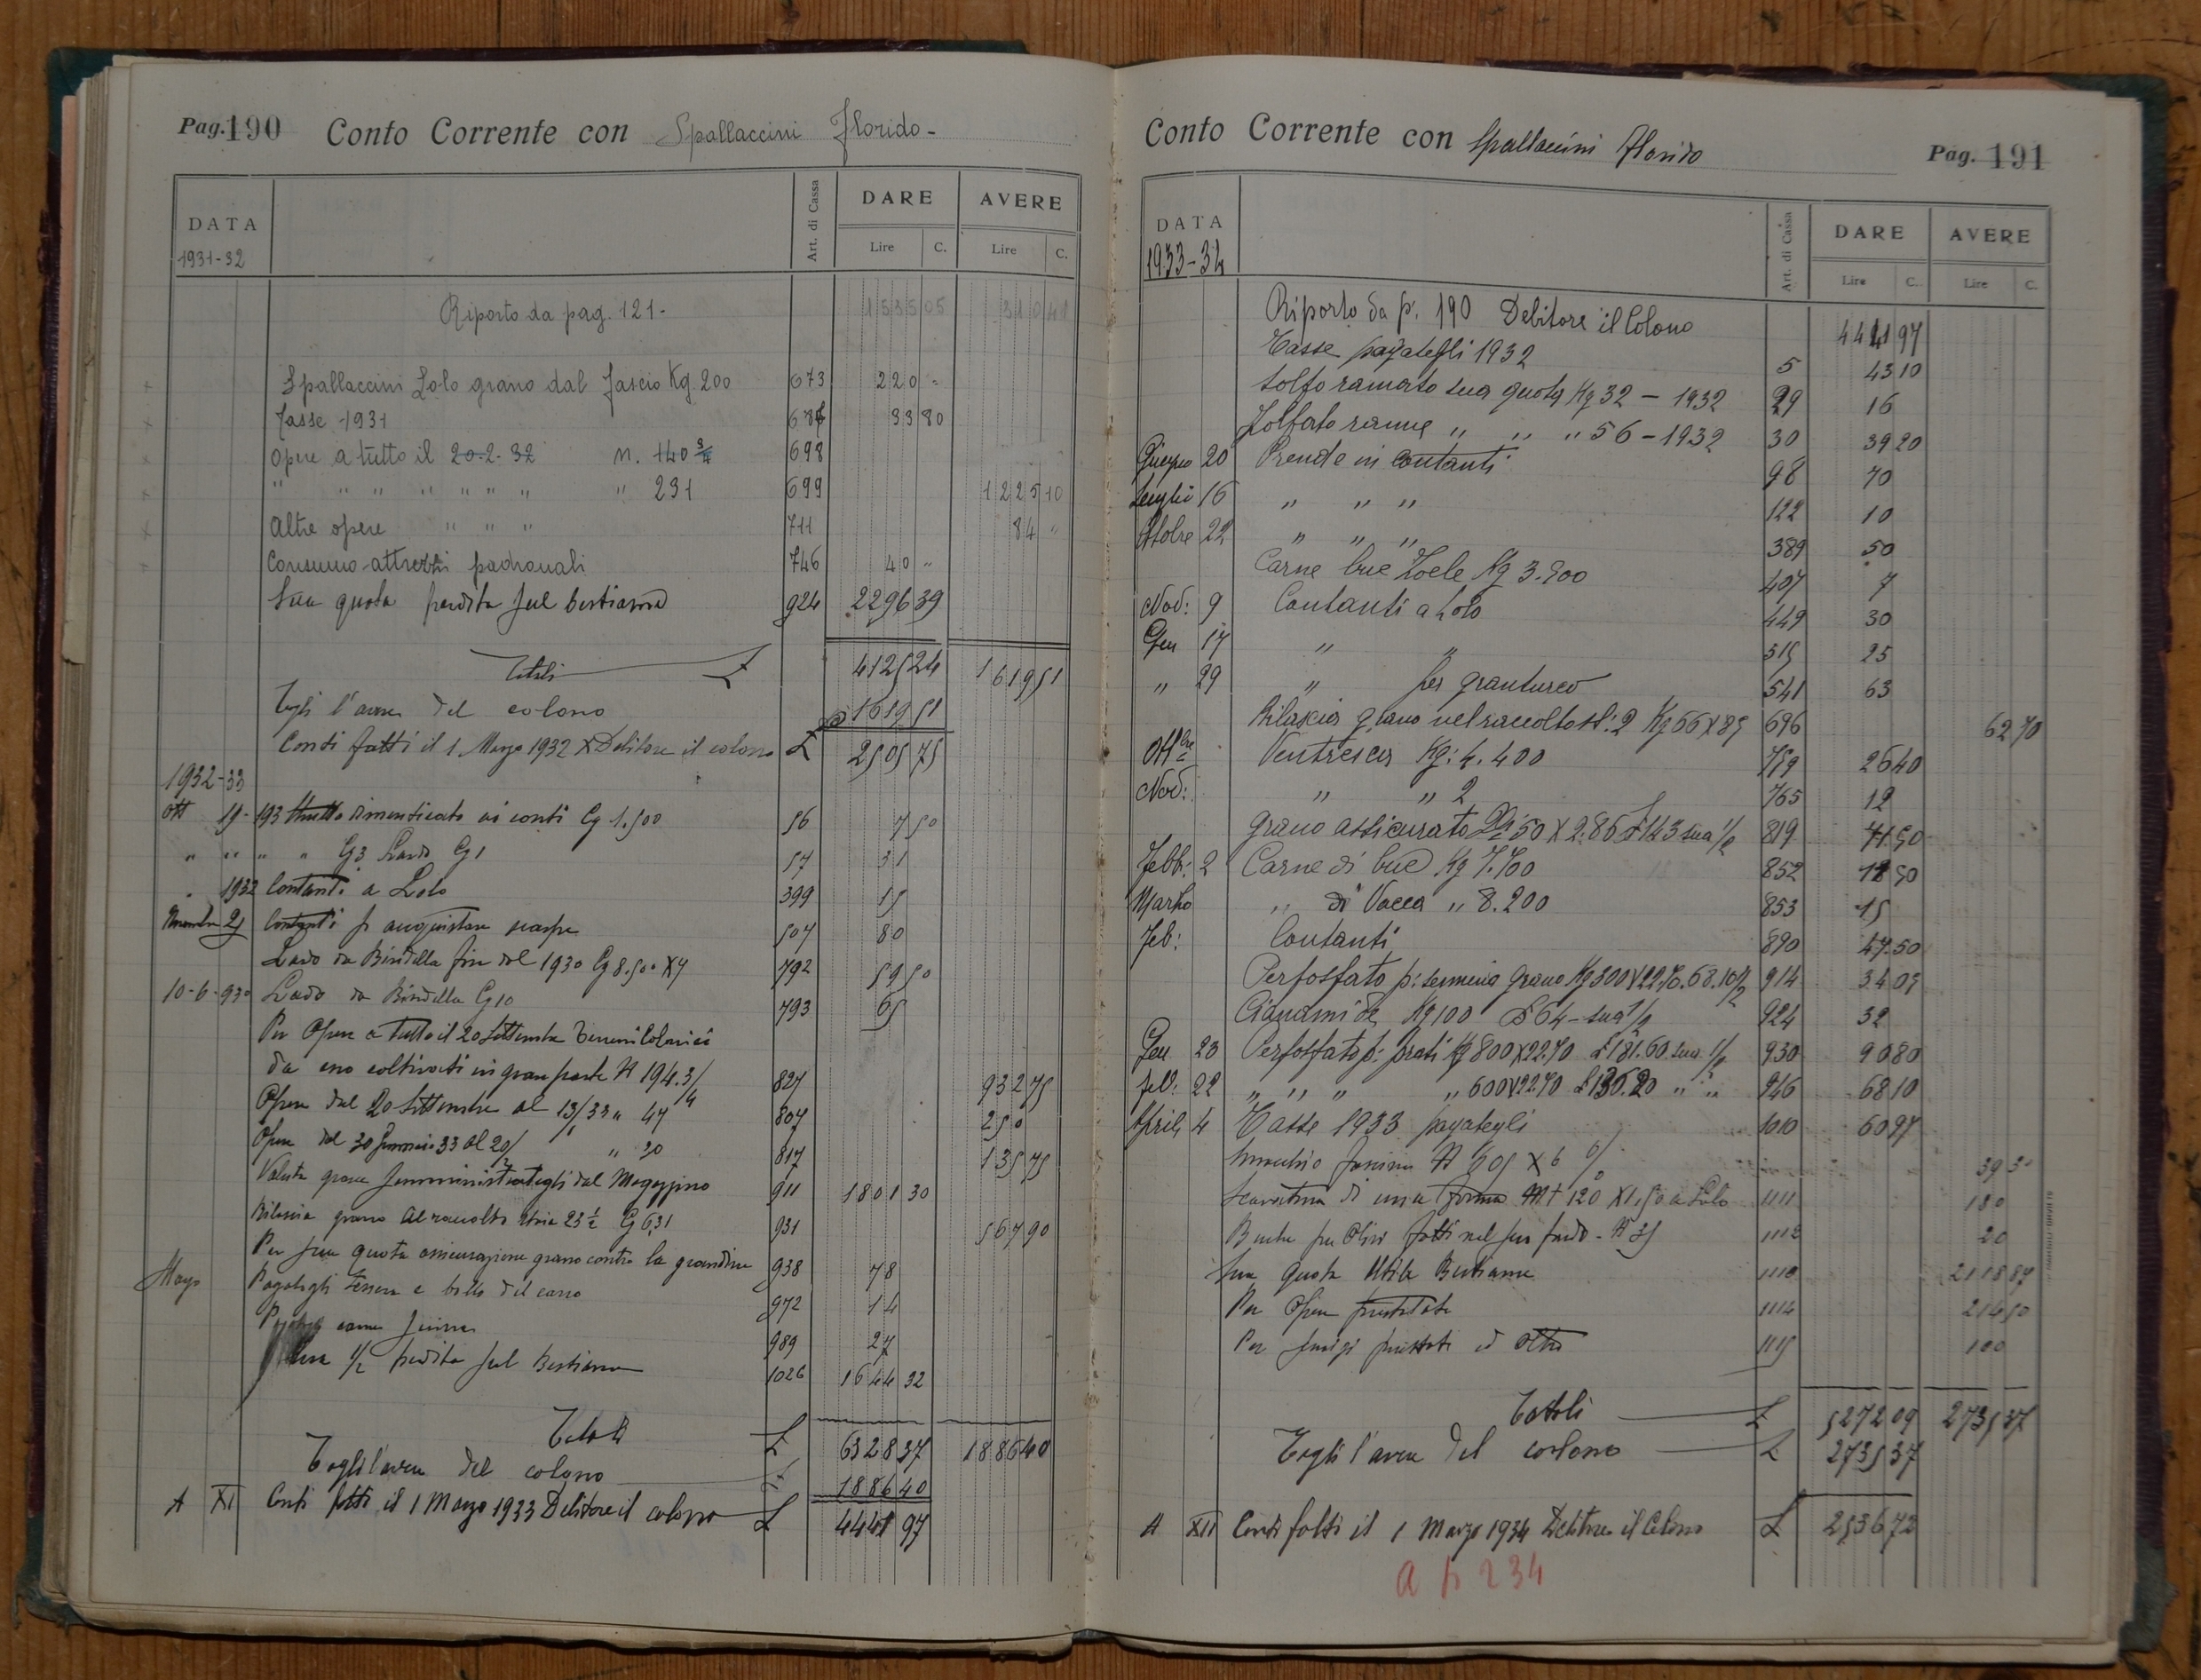 Pag. 190 Conto Corrente con Spallaccini Florido -
DATA Art. di Cassa DARE AVERE
1931-32 Lire C. Lire C.
Riporto da pag. 121 - 1535 05 310 41
Spallaccini Lolo grano dal fascio Kg. 200 673 220 -
Tasse 1931 33 80
Opere a tutto il 20-2-32 n. 140 3/4 698
" " " " " " " " 231 699 1225 10
Altre opere " " " 711 84 "
Consumo attrezzi padronali 746 40 "
Sua quota perdita sul bestiame 924 2296 39
Totali £ 4125 24 1619 51
Togli l'avere del colono 1619 51
Conti fatti il 1 Marzo 1932 X Debitore il colono £ 2505 75
1932-33
Ott 19 - 193 Strutto dimenticato ai conti Cg 1.500 56 7 50
" " " " G3 Lardo Cg 1 57 31
" 1932 Contanti a Lolo 399 15
25 Contanti p acquistare scarpe 507 80
Lardo da Bindella fin dal 1930 Cg 8.500 X 7 792 59 50
10-6-930 Lardo da Bindella Cg 10 793 65
Per Opere a tutto il 20 Settembre Terreni Colonici
da esso coltivati in gran parte N 194.3/4 827 932 75
Opere dal 20 Settembre al 13/1 33 " 47 807 250
Opere dal 30 Gennaio 33 al 20/2 " 30 817 135 75
Valuta grano somministratogli dal Magazzino 911 1801 30
Rilascia grano al raccolto staia 23 1/2 Cg 631 931 567 90
Per sua quota assicurazione grano contro la grandine 938 78
Mago Pagatogli tessera e bollo del carro 972 14
carne suina 989 27
Sua 1/2 perdita sul Bestiame 1026 1644 32
Totali £ 6328 37 1886 40
Togli l'avere del colono 1886 40
A XI Conti fatti il 1 Marzo 1933 Debitore il colono £ 4441 97
Conto Corrente con Spallaccini Florido Pag. 191
DATA Art. di Cassa DARE AVERE
1933-34 Lire C. Lire C.
Riporto da p. 190 Debitore il Colono 4441 97
Tasse pagategli 1932 5 43 10
Solfo ramato sua quota Kg 32 - 1932 29 16
Solfato rame " " " 56 - 1932 30 39 20
Giugno 20 Prende in contanti 98 70
Luglio 16 " " " 122 10
Ottobre 22 " " " 389 50
Carne bue Kg 3.500 407 7
Nov: 9 Contanti a Lolo 449 30
Gen 17 " " 515 25
" 29 " per granturco 541 63
Rilascia grano nel raccolto st: 2 Kg 56 X 85 696 62 70
Ottbre Ventresca Kg: 4.400 759 26 40
Nov: " " 2 765 12
Grano assicurato Ql: 50 X 2.86 £ 143 sua 1/2 819 71 50
Febb: 2 Carne di bue Kg 7.700 852 50
Marzo " di Vacca " 8.200 853 15
Feb: Contanti 890 47.50
Perfosfato p: semina grano Kg 300 X 22.70. 68.10 1/2 914 34 05
Cianamide Kg 100 £ 64 - sua 1/2 924 32
Gen 23 Perfosfato p: prati Kg 800 X 22.70 £ 181.60 sua 1/2 930 90 80
Feb. 22 " " " " 600 X 22.70 £ 136.20 " " 946 68 10
Aprile 4 Tasse 1933 pagategli 1010 60 97
X 6 % 39 30
Scavatura di una forma Mt 120 X 1,50 a Lolo 1111 180
Buche per Olivi fatti nel suo fondo - N 35 1112 20
Sua quota Utile Bestiame 1113 2118 87
Per Opere prestate 1114 214 50
Per prestati ed altro 1115 100
Totali £ 5272 09 2735 37
Togli l'avere del colono £ 2735 37
A XII Conti fatti il 1 Marzo 1934 Debitore il Colono £ 2536 72
a p 234